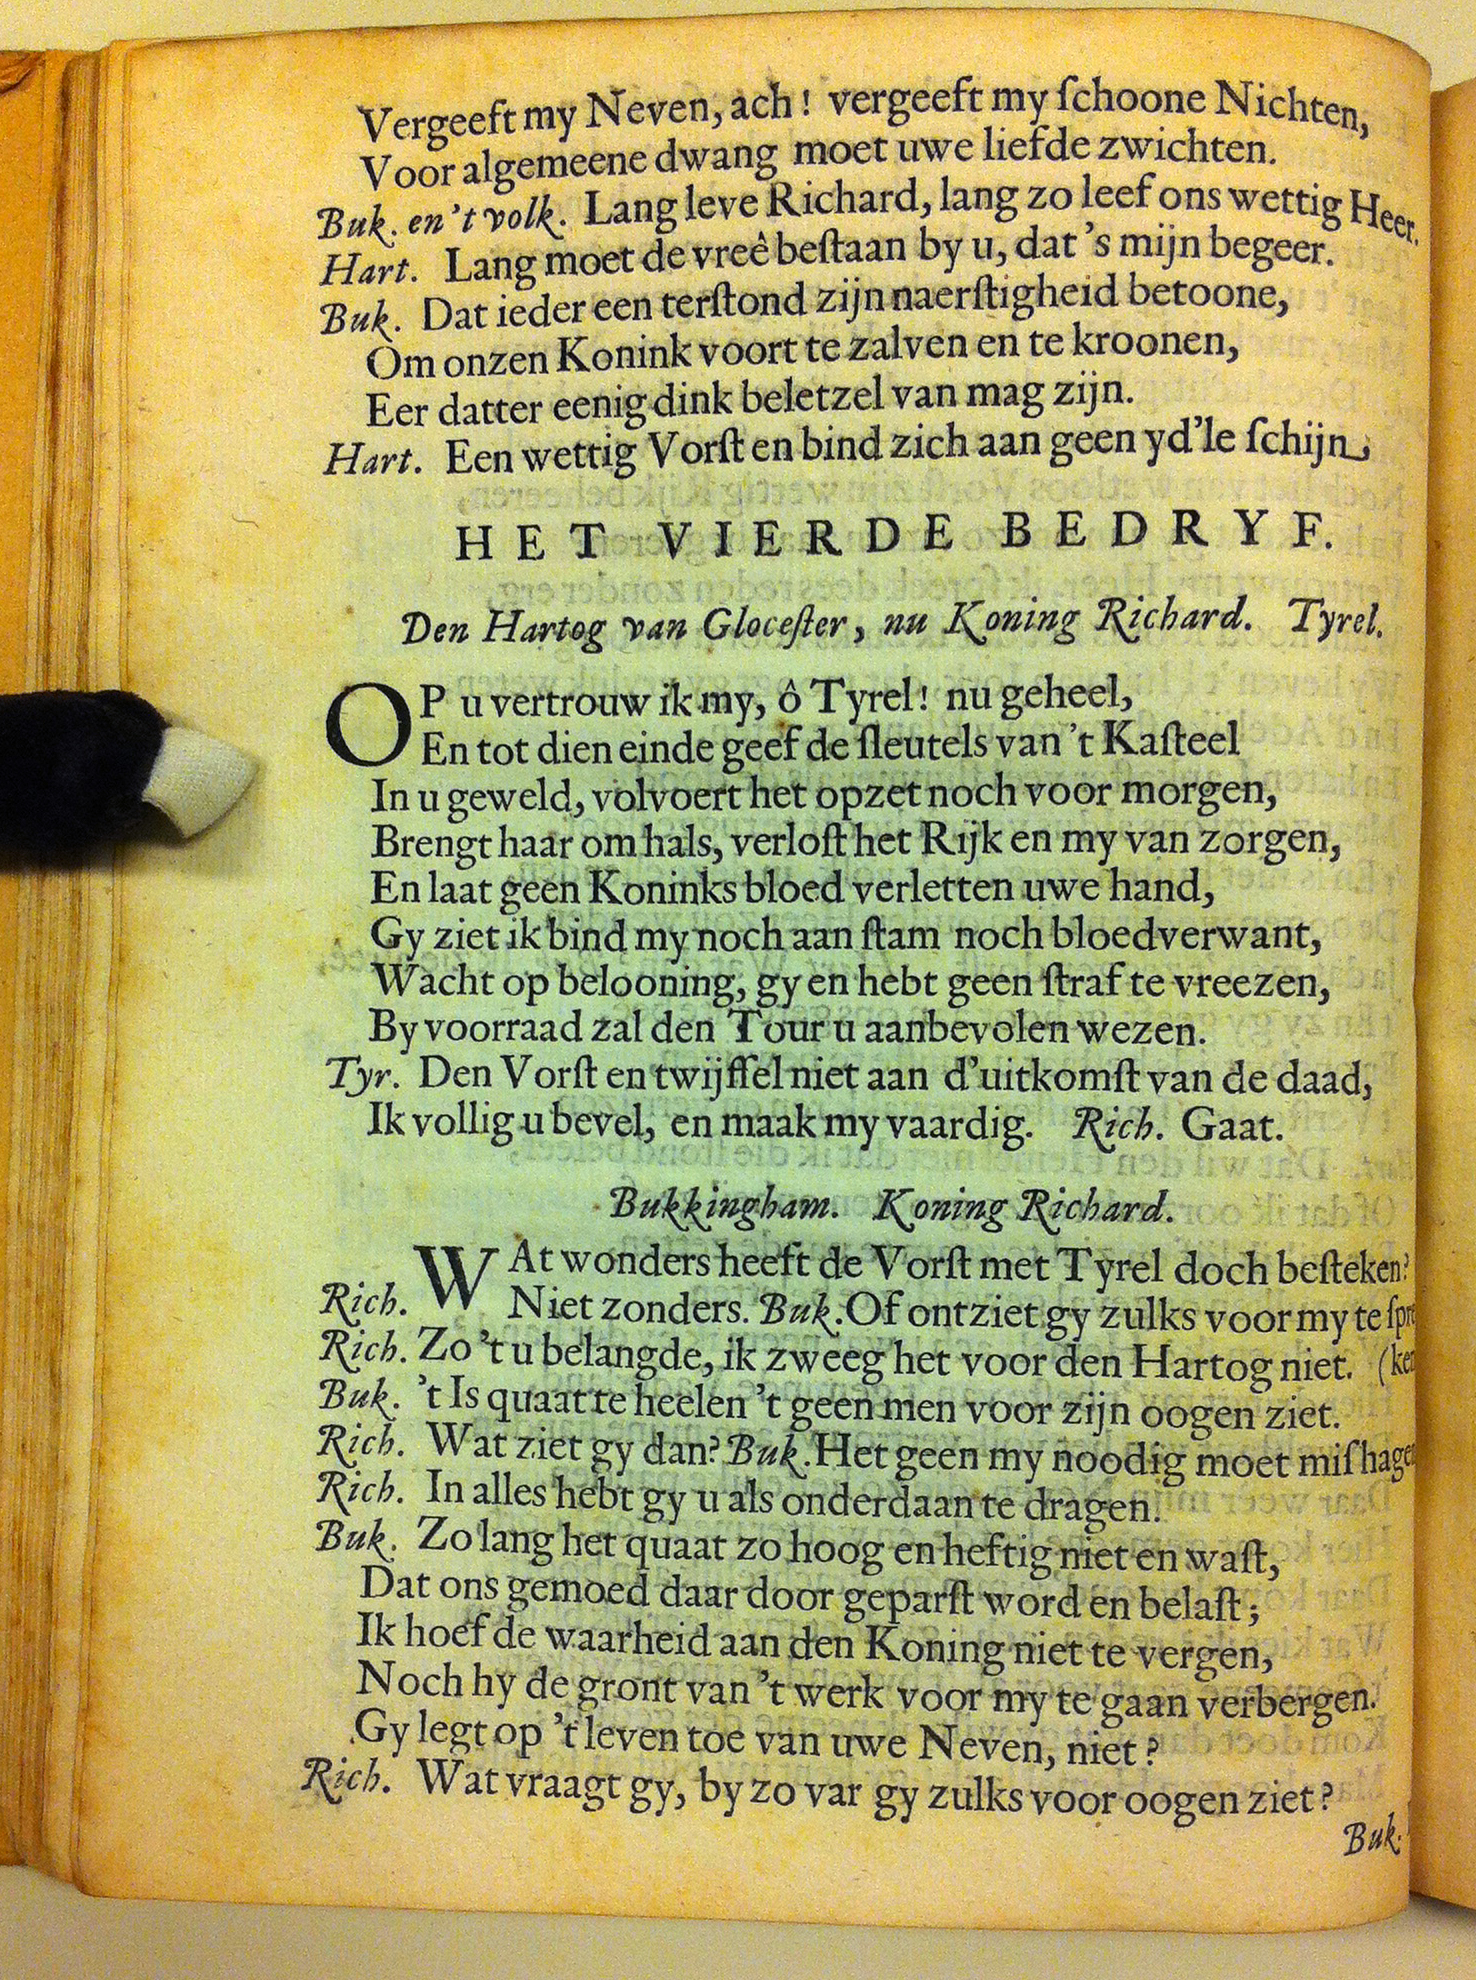 Vergeeft my Neven, ach! vergeeft my ſchoone Nichten,
Voor algemeene dwang moet uwe liefde zwichten.
Buk. en 't volk. Lang leve Richard, lang zo leef ons wettig Heer.
Hart. Lang moet de vreê beſtaan by u, dat 's mijn begeer.
Buk. Dat ieder een terſtond zijn naerſtigheid betoone,
Om onzen Konink voort te zalven en te kroonen,
Eer datter eenig dink beletzel van mag zijn.
Hart. Een wettig Vorſt en bind zich aan geen yd'le ſchijn.
HET VIERDE BEDRYF.
Den Hartog van Gloceſter, nu Koning Richard. Tyrel.
OP u vertrouw ik my, ô Tyrel! nu geheel,
En tot dien einde geef de ſleutels van 't Kaſteel
In u geweld, volvoert het opzet noch voor morgen,
Brengt haar om hals, verloſt het Rijk en my van zorgen,
En laat geen Koninks bloed verletten uwe hand,
Gy ziet ik bind my noch aan ſtam noch bloedverwant,
Wacht op belooning, gy en hebt geen ſtraf te vreezen,
By voorraad zal den Tour u aanbevolen wezen.
Tyr. Den Vorſt en twijffel niet aan d'uitkomſt van de daad,
Ik vollig u bevel, en maak my vaardig. Rich. Gaat.
Bukkingham. Koning Richard.
WAt wonders heeft de Vorſt met Tyrel doch beſteken?
Rich. Niet zonders. Buk. Of ontziet gy zulks voor my te ſpre
Rich. Zo 't u belangde, ik zweeg het voor den Hartog niet. (ken
Buk. 't Is quaat te heelen 't geen men voor zijn oogen ziet.
Rich. Wat ziet gy dan? Buk. Het geen my noodig moet miſhagen
Rich. In alles hebt gy u als onderdaan te dragen.
Buk. Zo lang het quaat zo hoog en heftig niet en waſt,
Dat ons gemoed daar door geparſt word en belaſt;
Ik hoef de waarheid aan den Koning niet te vergen,
Noch hy de gront van 't werk voor my te gaan verbergen.
Gy legt op 't leven toe van uwe Neven, niet?
Rich. Wat vraagt gy, by zo var gy zulks voor oogen ziet?
Buk.